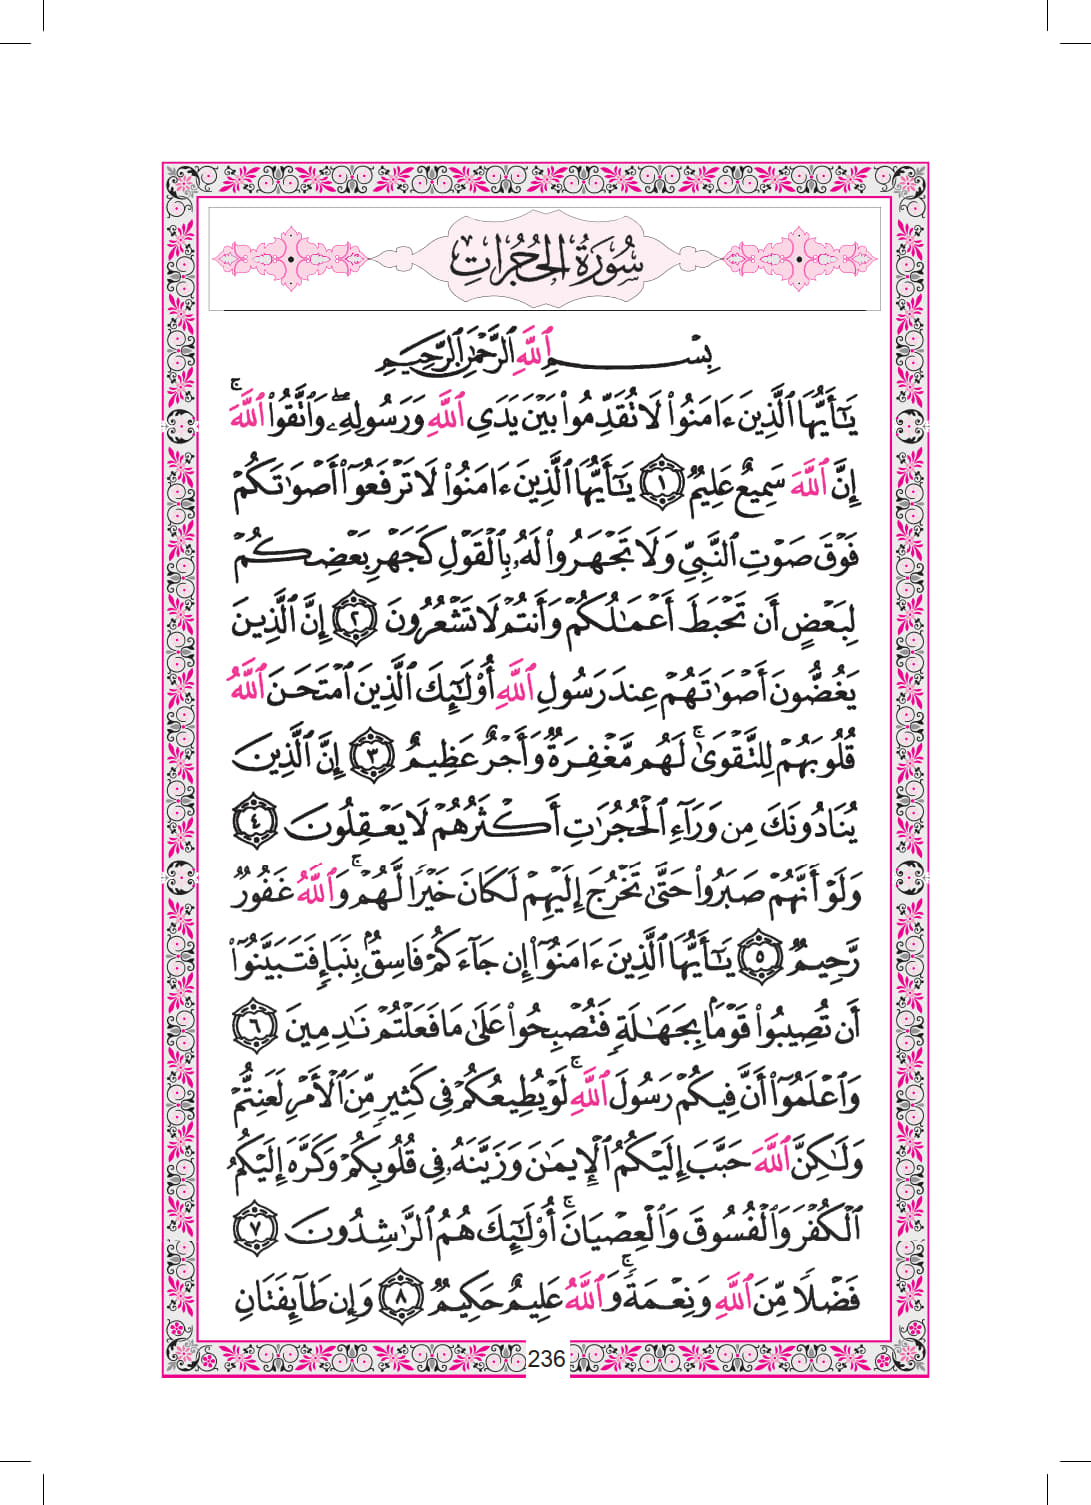 سُورَةُ الحُجُرَاتِ
بِسْمِ ٱللَّهِ ٱلرَّحْمَٰنِ ٱلرَّحِيمِ
يَٰٓأَيُّهَا ٱلَّذِينَ ءَامَنُوا۟ لَا تُقَدِّمُوا۟ بَيْنَ يَدَىِ ٱللَّهِ وَرَسُولِهِۦ ۖ وَٱتَّقُوا۟ ٱللَّهَ ۚ
إِنَّ ٱللَّهَ سَمِيعٌ عَلِيمٌ ١ يَٰٓأَيُّهَا ٱلَّذِينَ ءَامَنُوا۟ لَا تَرْفَعُوٓا۟ أَصْوَٰتَكُمْ
فَوْقَ صَوْتِ ٱلنَّبِىِّ وَلَا تَجْهَرُوا۟ لَهُۥ بِٱلْقَوْلِ كَجَهْرِ بَعْضِكُمْ
لِبَعْضٍ أَن تَحْبَطَ أَعْمَٰلُكُمْ وَأَنتُمْ لَا تَشْعُرُونَ ٢ إِنَّ ٱلَّذِينَ
يَغُضُّونَ أَصْوَٰتَهُمْ عِندَ رَسُولِ ٱللَّهِ أُو۟لَٰٓئِكَ ٱلَّذِينَ ٱمْتَحَنَ ٱللَّهُ
قُلُوبَهُمْ لِلتَّقْوَىٰ ۚ لَهُم مَّغْفِرَةٌ وَأَجْرٌ عَظِيمٌ ٣ إِنَّ ٱلَّذِينَ
يُنَادُونَكَ مِن وَرَآءِ ٱلْحُجُرَٰتِ أَكْثَرُهُمْ لَا يَعْقِلُونَ ٤
وَلَوْ أَنَّهُمْ صَبَرُوا۟ حَتَّىٰ تَخْرُجَ إِلَيْهِمْ لَكَانَ خَيْرًا لَّهُمْ ۚ وَٱللَّهُ غَفُورٌ
رَّحِيمٌ ٥ يَٰٓأَيُّهَا ٱلَّذِينَ ءَامَنُوٓا۟ إِن جَآءَكُمْ فَاسِقٌۢ بِنَبَإٍ فَتَبَيَّنُوٓا۟
أَن تُصِيبُوا۟ قَوْمًۢا بِجَهَٰلَةٍ فَتُصْبِحُوا۟ عَلَىٰ مَا فَعَلْتُمْ نَٰدِمِينَ ٦
وَٱعْلَمُوٓا۟ أَنَّ فِيكُمْ رَسُولَ ٱللَّهِ ۚ لَوْ يُطِيعُكُمْ فِى كَثِيرٍ مِّنَ ٱلْأَمْرِ لَعَنِتُّمْ
وَلَٰكِنَّ ٱللَّهَ حَبَّبَ إِلَيْكُمُ ٱلْإِيمَٰنَ وَزَيَّنَهُۥ فِى قُلُوبِكُمْ وَكَرَّهَ إِلَيْكُمُ
ٱلْكُفْرَ وَٱلْفُسُوقَ وَٱلْعِصْيَانَ ۚ أُو۟لَٰٓئِكَ هُمُ ٱلرَّٰشِدُونَ ٧
فَضْلًا مِّنَ ٱللَّهِ وَنِعْمَةً ۚ وَٱللَّهُ عَلِيمٌ حَكِيمٌ ٨ وَإِن طَآئِفَتَانِ
236